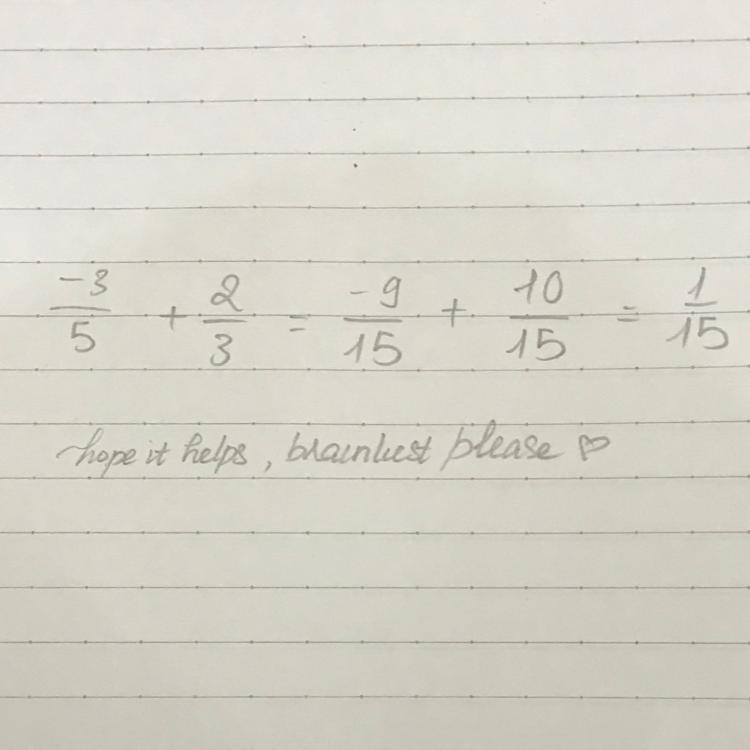 -3/5 + 2/3 = -9/15 + 10/15 = 1/15
hope it helps, brainliest please ♡